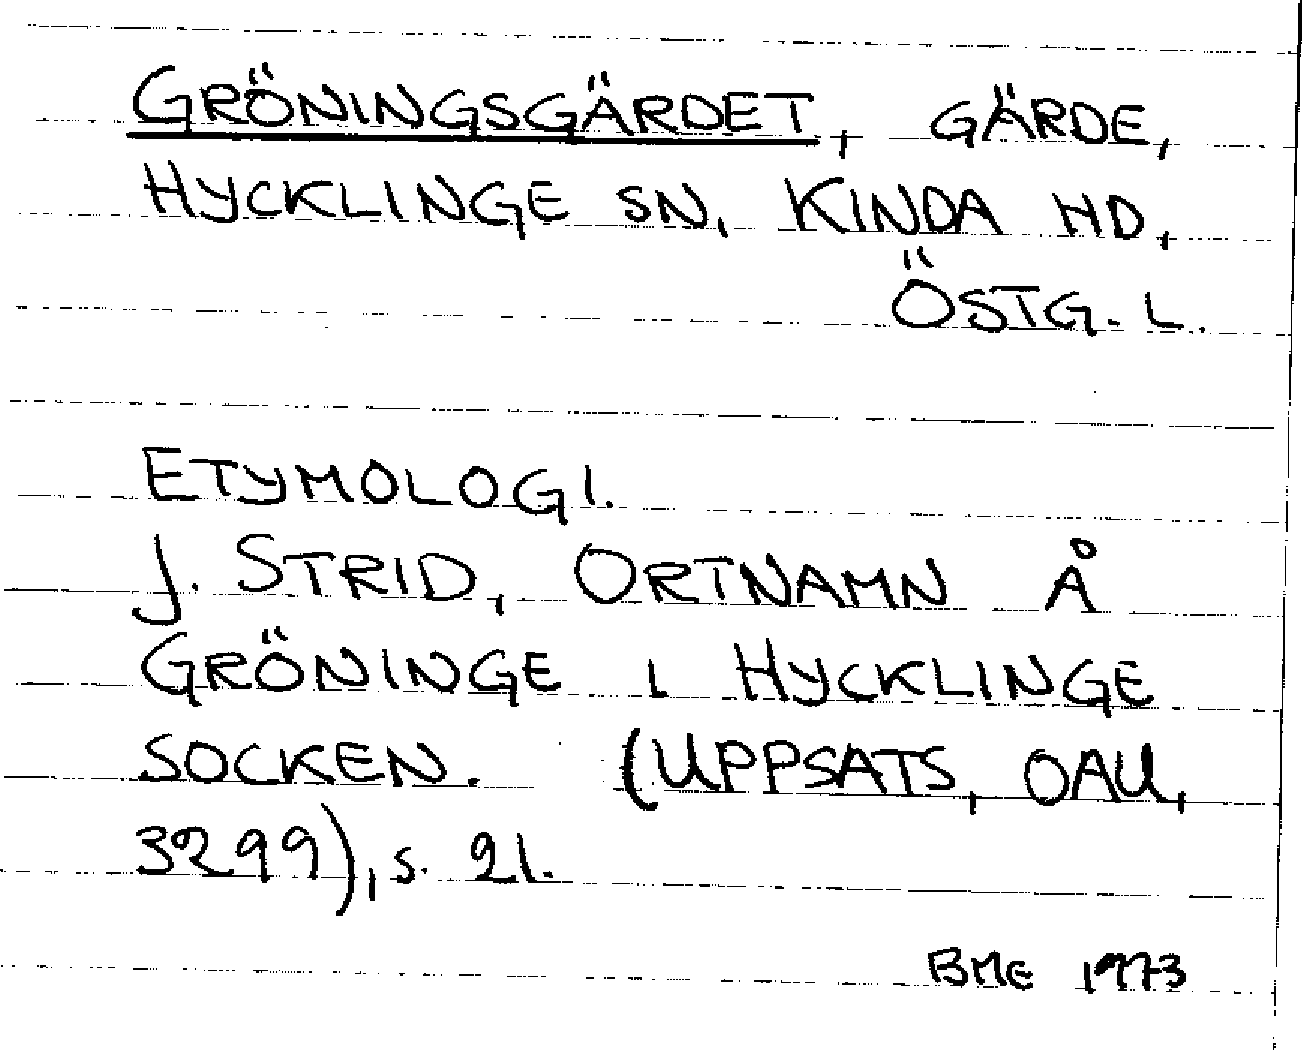 GRÖNINGSGÄRDET, GÄRDE,
HYCKLINGE SN, KINDA HD,
ÖSTG. L.
ETYMOLOGI.
J. STRID, ORTNAMN Å
GRÖNINGE I HYCKLINGE
SOCKEN. (UPPSATS, OAU,
3299), S. 21.
BME 1973